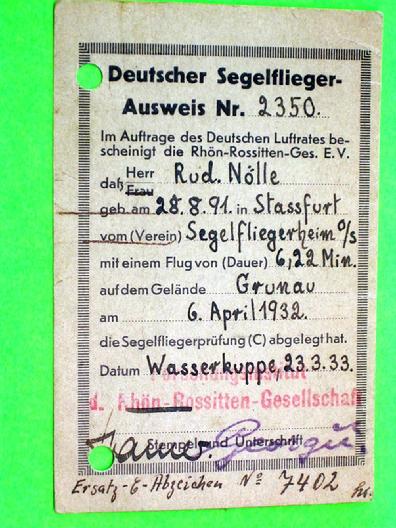 Deutscher Segelflieger-
Ausweis Nr. 2350.
Im Auftrage des Deutschen Luftrates be-
scheinigt die Rhön-Rossitten-Ges. E.V.
daß Herr Frau Rud. Nölle
geb. am 28.8.91. in Stassfurt
vom (Verein) Segelfliegerheim o/s
mit einem Flug von (Dauer) 6,22 Min.
auf dem Gelände Grunau
am 6. April 1932.
die Segelfliegerprüfung (C) abgelegt hat.
Datum Wasserkuppe, 23.3.33.
Forschungsinstitut
d. Rhön-Rossitten-Gesellschaft
Stempel und Unterschrift
Georgii
Ersatz-C-Abzeichen No 7402